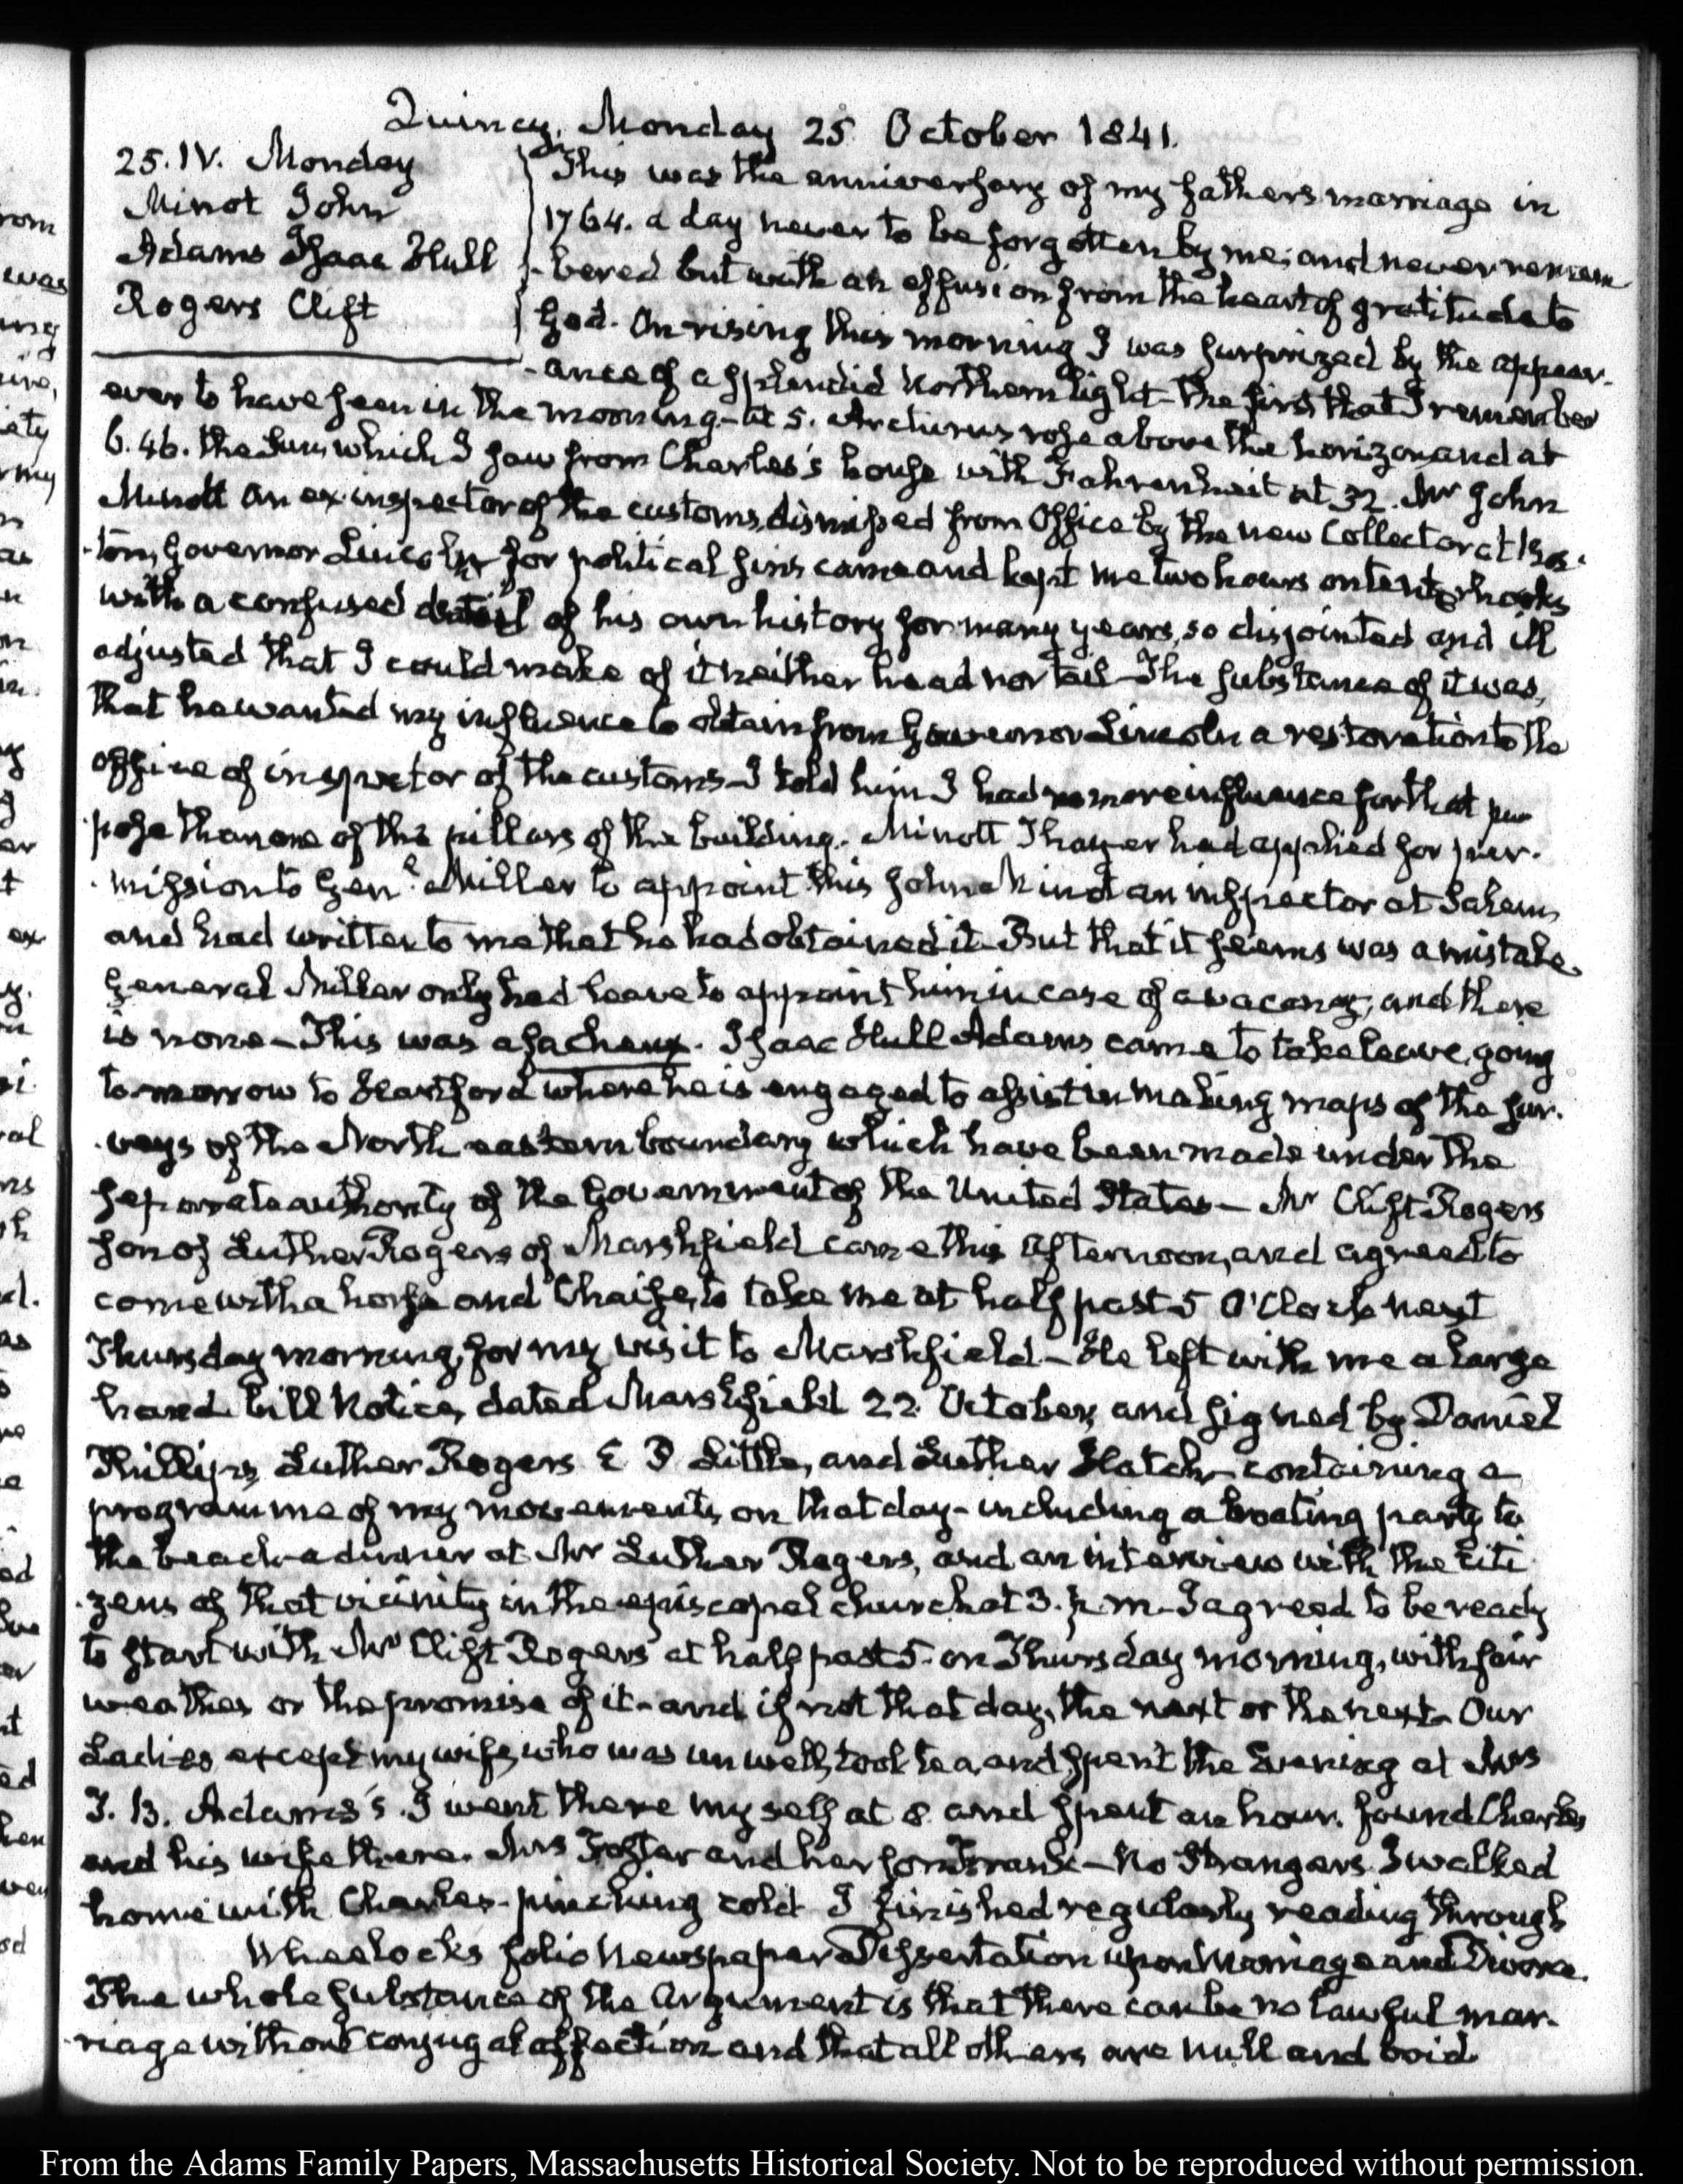 Quincy, Monday 25 October 1841.
25. IV. Monday
Minot John
Adams Isaac Hull
Rogers Clift
This was the anniversary of my fathers marriage in
1764. a day never to be forgotten by me; and never remem
-bered but with an effusion from the heart of gratitude to
God. On rising this morning I was surprized by the appear-
-ance of a splendid Northern light—the first that I remember
ever to have seen in the morning—at 5. Arcturus rose above the horizon and at
6.46. the Sun, which I saw from Charles's house with Fahrenheit at 32. Mr John
Minott an ex inspector of the customs, dismissed from Office by the new Collector at Bos-
-ton, Governor Lincoln for political sins came and kept me two hours on tenterhooks
with a confused detail of his own history for many years, so disjointed and ill
adjusted that I could make of it neither head nor tail—The substance of it was,
that he wanted my influence to obtain from Governor Lincoln a restoration to the
office of inspector of the customs—I told him I had no more influence for that pur
pose than one of the pillars of the building. Minott Thayer had applied for per-
-mission to Genl. Miller to appoint this John Minot an inspector at Salem,
and had written to me that he had obtained it—But that it seems was a mistake.
General Miller only had leave to appoint him in case of a vacancy; and there
is none—This was a facheux. Isaac Hull Adams came to take leave, going
to-morrow to Hartford where he is engaged to assist in making maps of the sur-
-veys of the North eastern boundary which have been made under the
separate authority of the Government of the United States—Mr Clift Rogers
son of Luther Rogers of Marshfield came this afternoon, and agreed to
come with a horse and Chaise, to take me at half past 5 O'Clock next
Thursday morning, for my visit to Marshfield—He left with me a large
hand-bill Notice, dated Marshfield 22. October, and signed by Daniel
Phillips, Luther Rogers E P Little, and Luther Hatch—containing a
programme of my movements on that day—including a boating party to
the beach—a dinner at Mr Luther Rogers, and an interview with the citi
-zens of that vicinity in the episcopal church at 3. p.m. I agreed to be ready
to start with Mr Clift Rogers at half past 5. on Thursday morning, with fair
weather or the promise of it—and if not that day, the next or the next—Our
Ladies except my wife, who was unwell, took tea, and spent the Evening at Mrs
T. B. Adams's. I went there myself at 8. and spent an hour. found Charles
and his wife there. Mrs Foster and her son Frank—No Strangers. I walked
home with Charles—pinching cold—I finished regularly reading through
Wheelocks folio Newspaper Dissertation upon Marriage and Divorce.
The whole substance of the Argument is that there can be no lawful mar-
-riage without conjugal affection and that all others are null and void
From the Adams Family Papers, Massachusetts Historical Society. Not to be reproduced without permission.